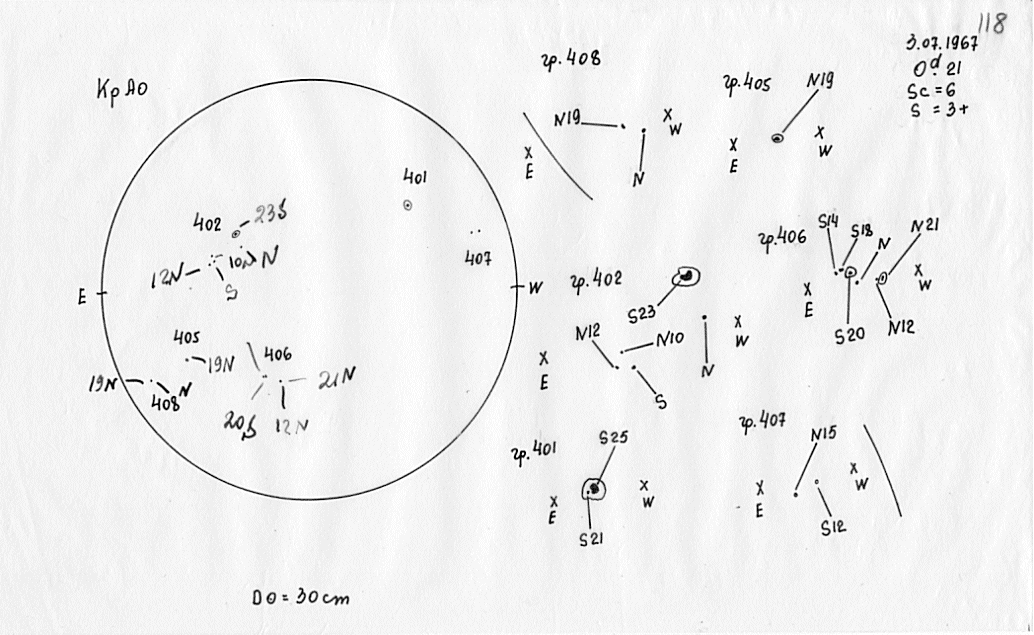 118
3.07.1967
0ᵈ. 21
Sc = 6
S = 3+
КрАО
E
W
401
402
23S
12N
10N
N
S
407
405
19N
406
19N
408
N
21N
20S
12N
D⊙ = 30 cm
гр. 408
N19
N
X
E
X
W
гр. 405
N19
X
E
X
W
гр. 402
S23
N12
N10
N
S
X
E
X
W
гр. 406
S14
S18
N
N21
S20
N12
X
E
X
W
гр. 401
S25
S21
X
E
X
W
гр. 407
N15
S12
X
E
X
W